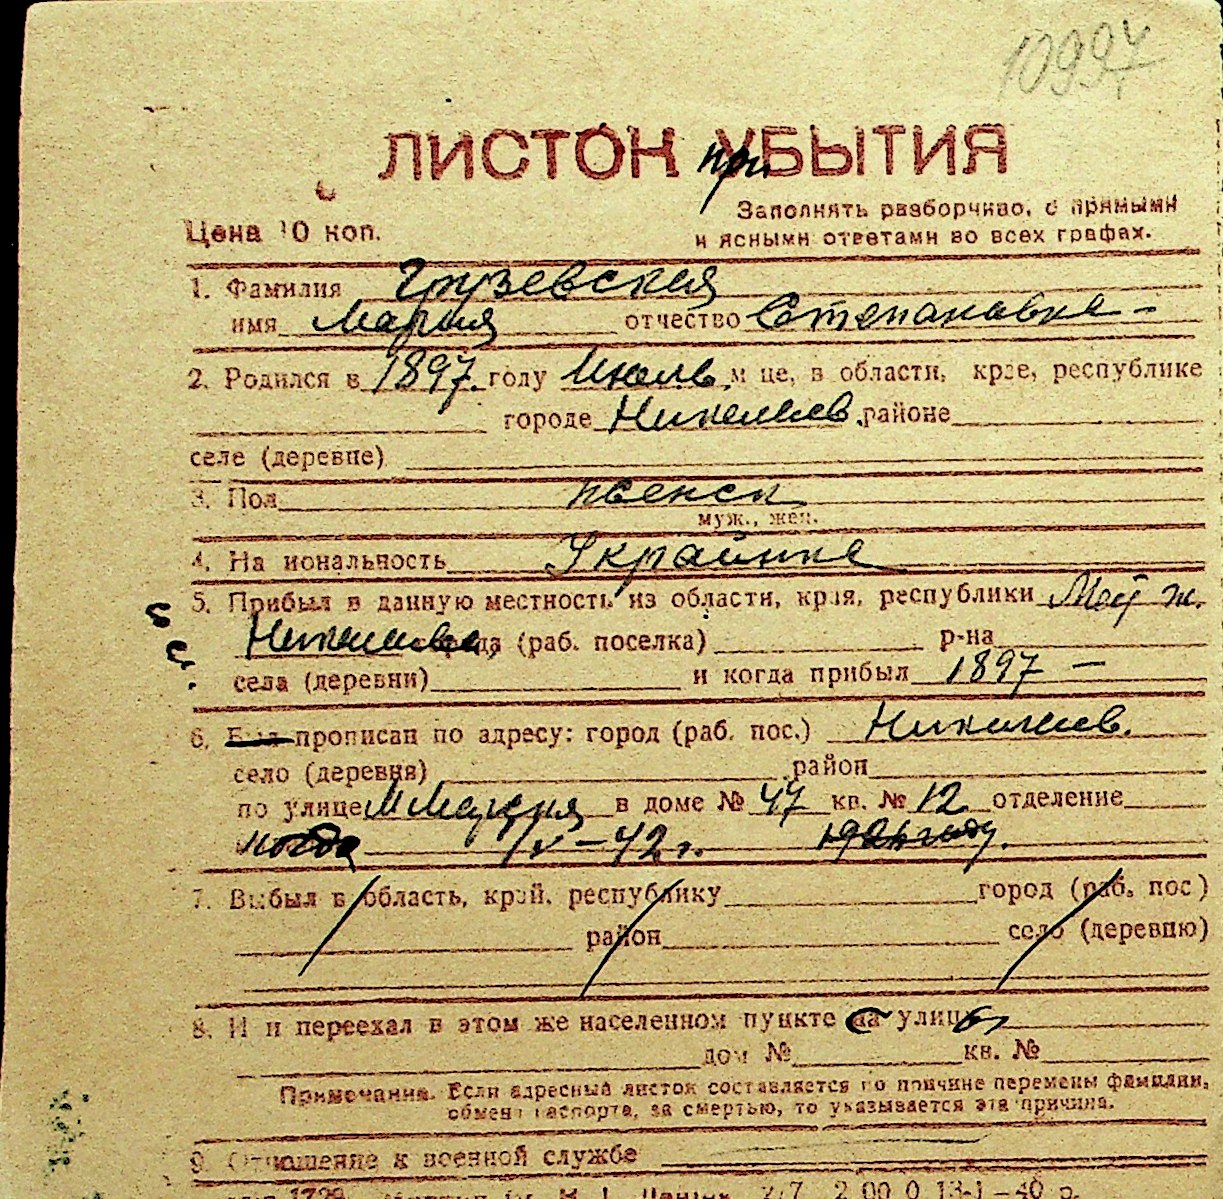 1099
ЛИСТОК УБЫТИЯ
при
Цена 10 коп.
Заполнять разборчиво, с прямыми
и ясными ответами во всех графах.
1. Фамилия Грузевская
имя Мария отчество Степановна -
2. Родился в 1897 году Июль м це, в области, крае, республике
городе Николаев. районе
селе (деревне)
3. Пол женск
муж., жен.
4. На иональность Украинка
5. Прибыл в данную местность из области, края, республики
Николаева, города (раб. поселка) р-на
села (деревни) и когда прибыл 1897 —
6. Был прописан по адресу: город (раб. пос.) Николаев.
село (деревня) район
по улице в доме № 47 кв. № 12 отделение
когда IV-42 г.
7. Выбыл в область, край, республику город (раб. пос)
район село (деревню)
8. И и переехал в этом же населенном пункте на улицу
дом № кв. №
Примечание. Если адресный листок составляется по причине перемены фамилии,
обмен паспорта, за смертью, то указывается эта причина.
9. Отношение к военной службе